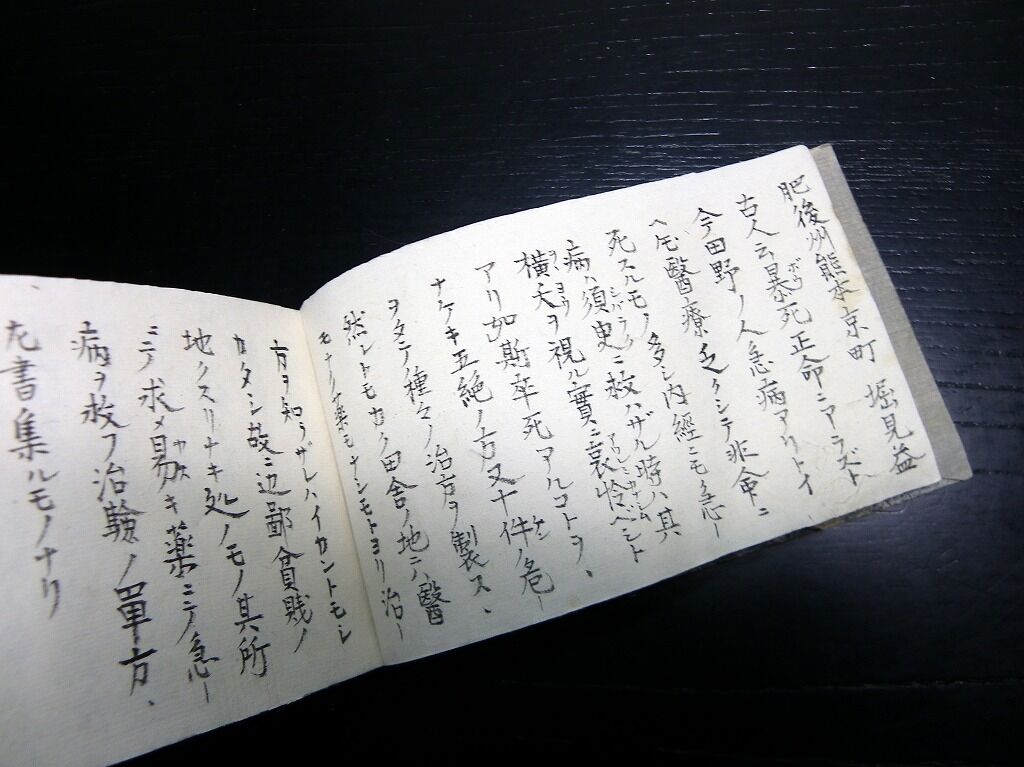 肥後州熊本京町　堀見益
古人云暴死正命ニアラズト
今田野ノ人急病アリトイ
ヘ𪜈醫療乏クシテ非命ニ
死スルモノ多シ内經ニモ急ー
病ハ須臾ニ救ハザル時ハ其
横夭ヲ視ル實ニ哀怜ヘシト
アリ如斯卒死アルコトヲ、
ナケキ五絶ノ方又十件ノ危ー
ヲタニノ種々ノ治方ヲ製ス、
然レトモカク田舎ノ地ニハ醫
モナク薬モナシモトヨリ治ー
方ヲ知ラザレハイカントモシ
カタシ故ニ辺鄙貧賎ノ
地クスリナキ処ノモノ其所
ニテ求メ易キ薬ニテ急ー
病ヲ救フ治驗ノ單方、
左書集ルモノナリ